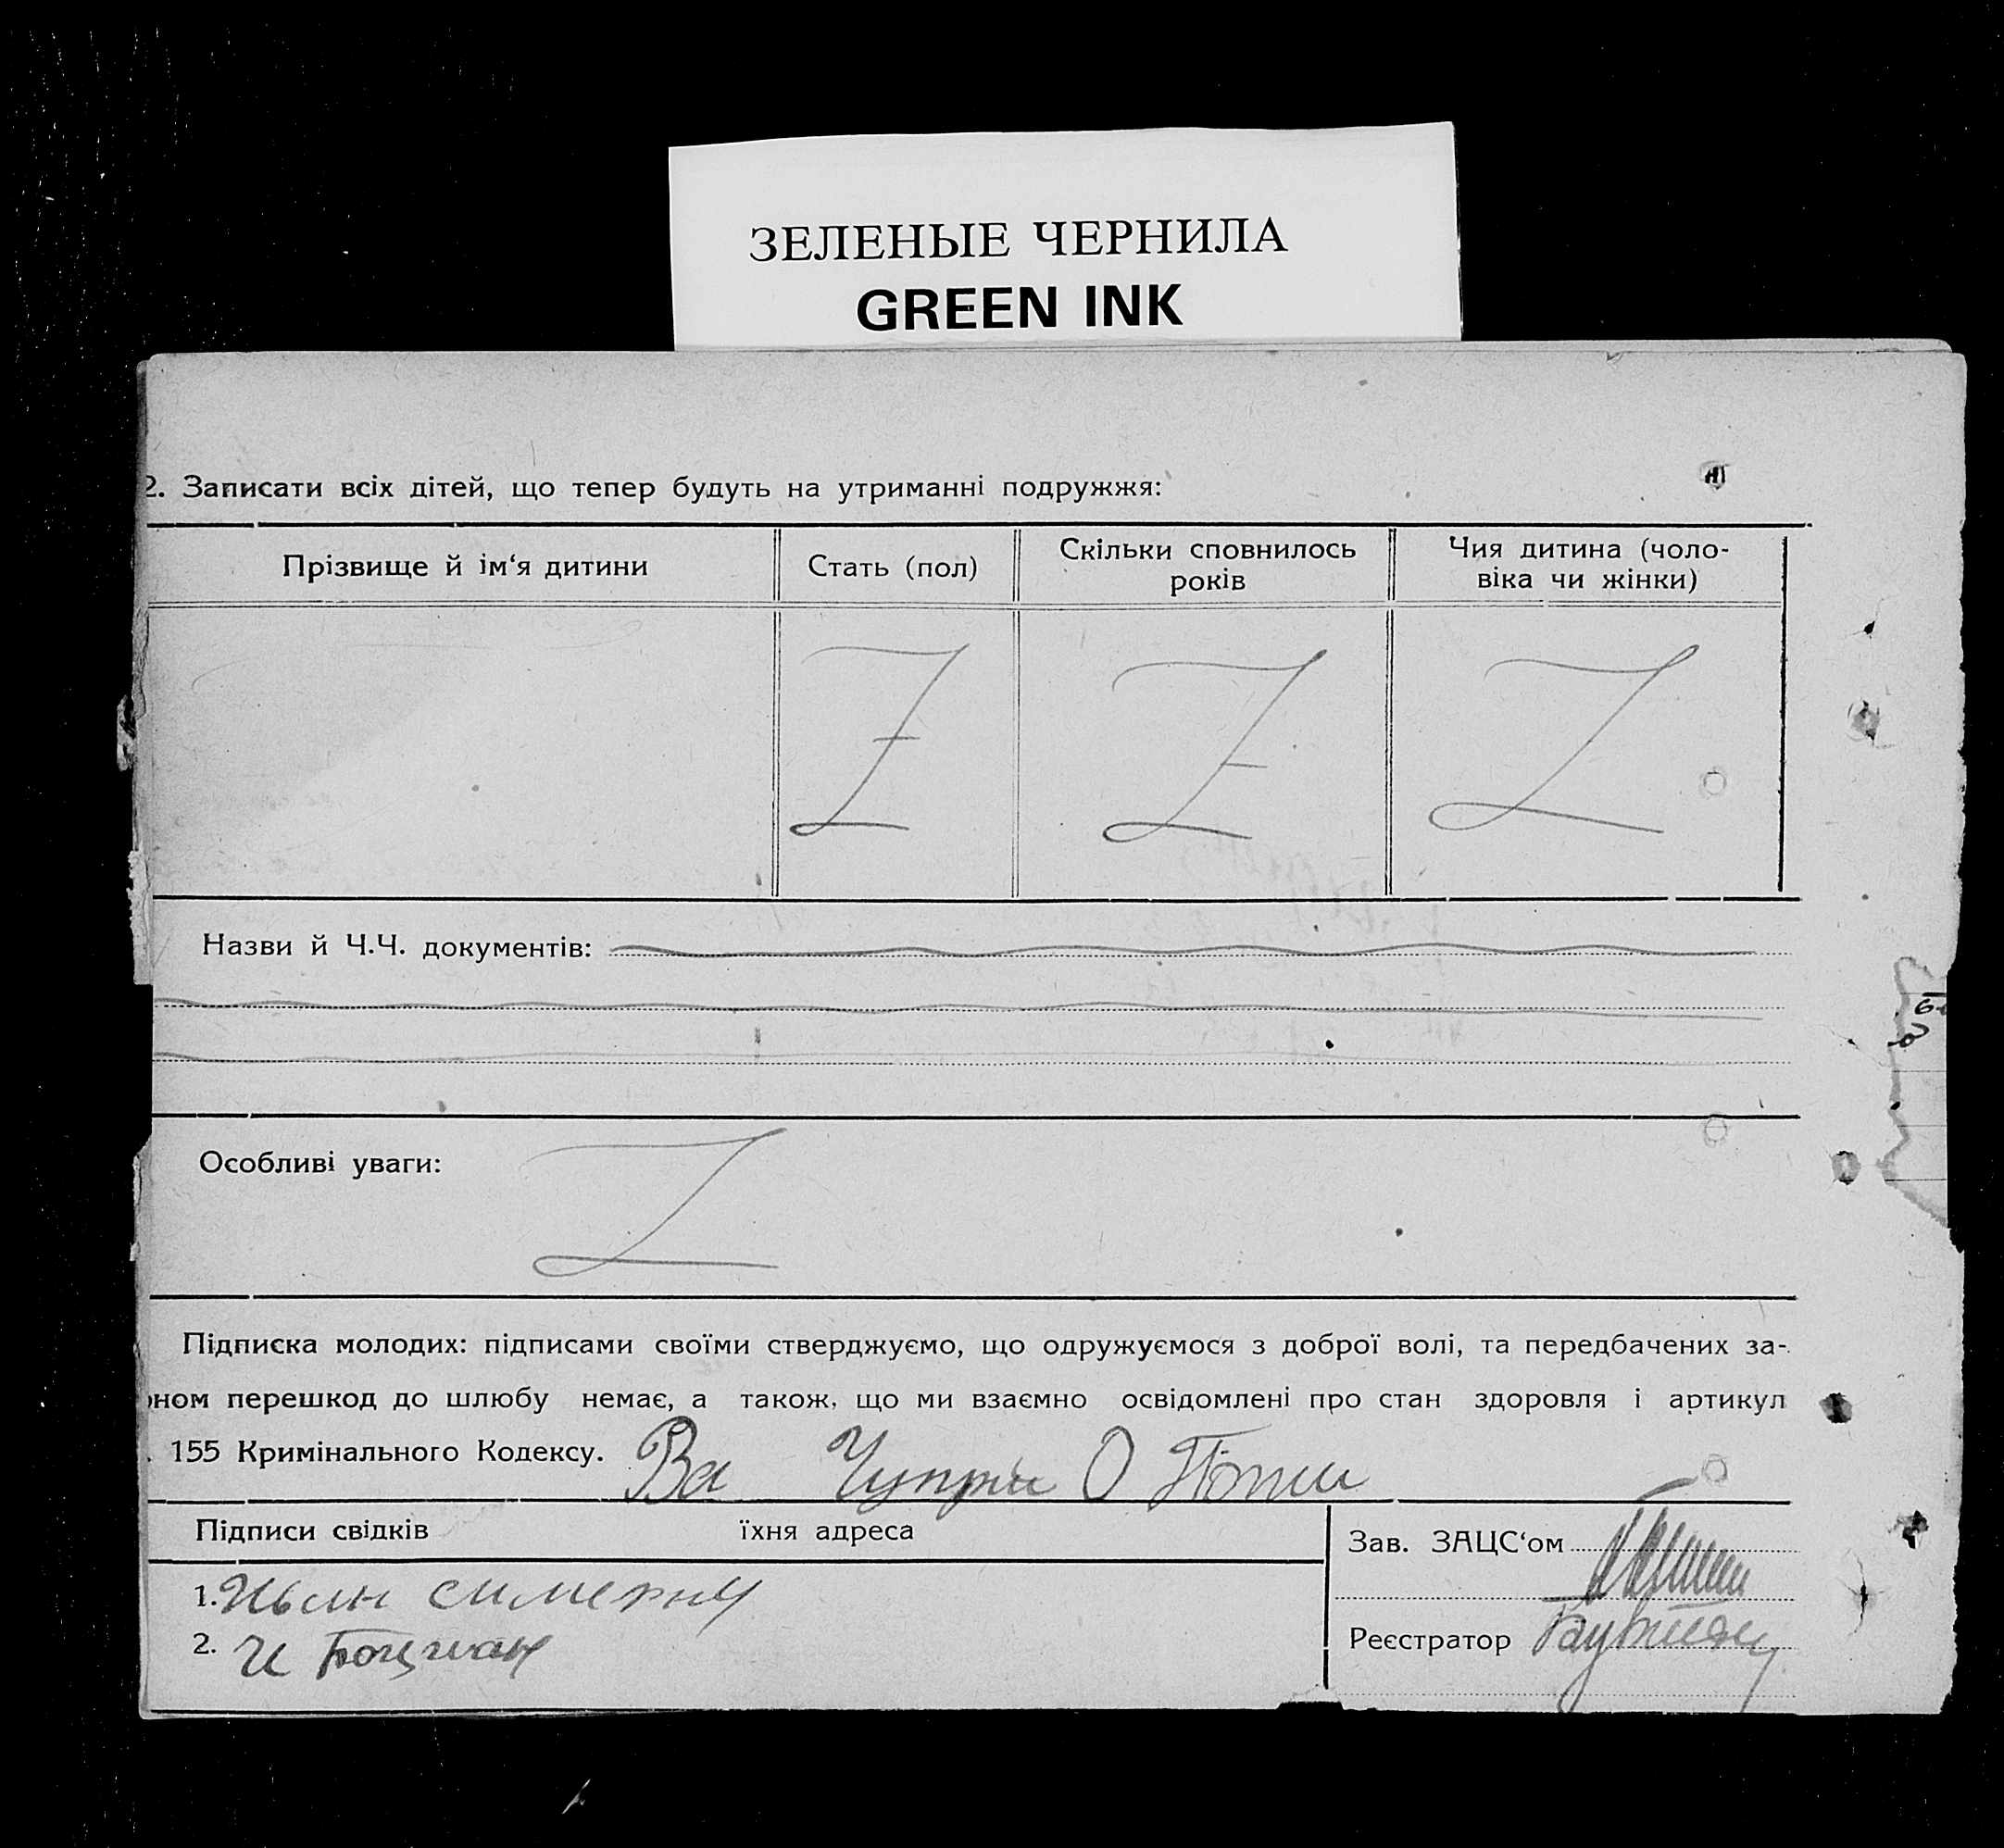 ЗЕЛЕНЫЕ ЧЕРНИЛА
GREEN INK
2. Записати всіх дітей, що тепер будуть на утриманні подружжя:
Прізвище й ім‘я дитини
Стать (пол)
Скільки сповнилось
років
Чия дитина (чоло-
віка чи жінки)
Z
Z
Z
Назви й Ч.Ч. документів:
Особливі уваги:
Z
Підписка молодих: підписами своїми стверджуємо, що одружуємося з доброї волі, та передбачених за-
оном перешкод до шлюбу немає, а також, що ми взаємно освідомлені про стан здоровля і артикул
155 Кримінального Кодексу. Ва Чупри О
Підписи свідків
їхня адреса
Зав. ЗАЦС‘ом
1.
2. И
Реєстратор